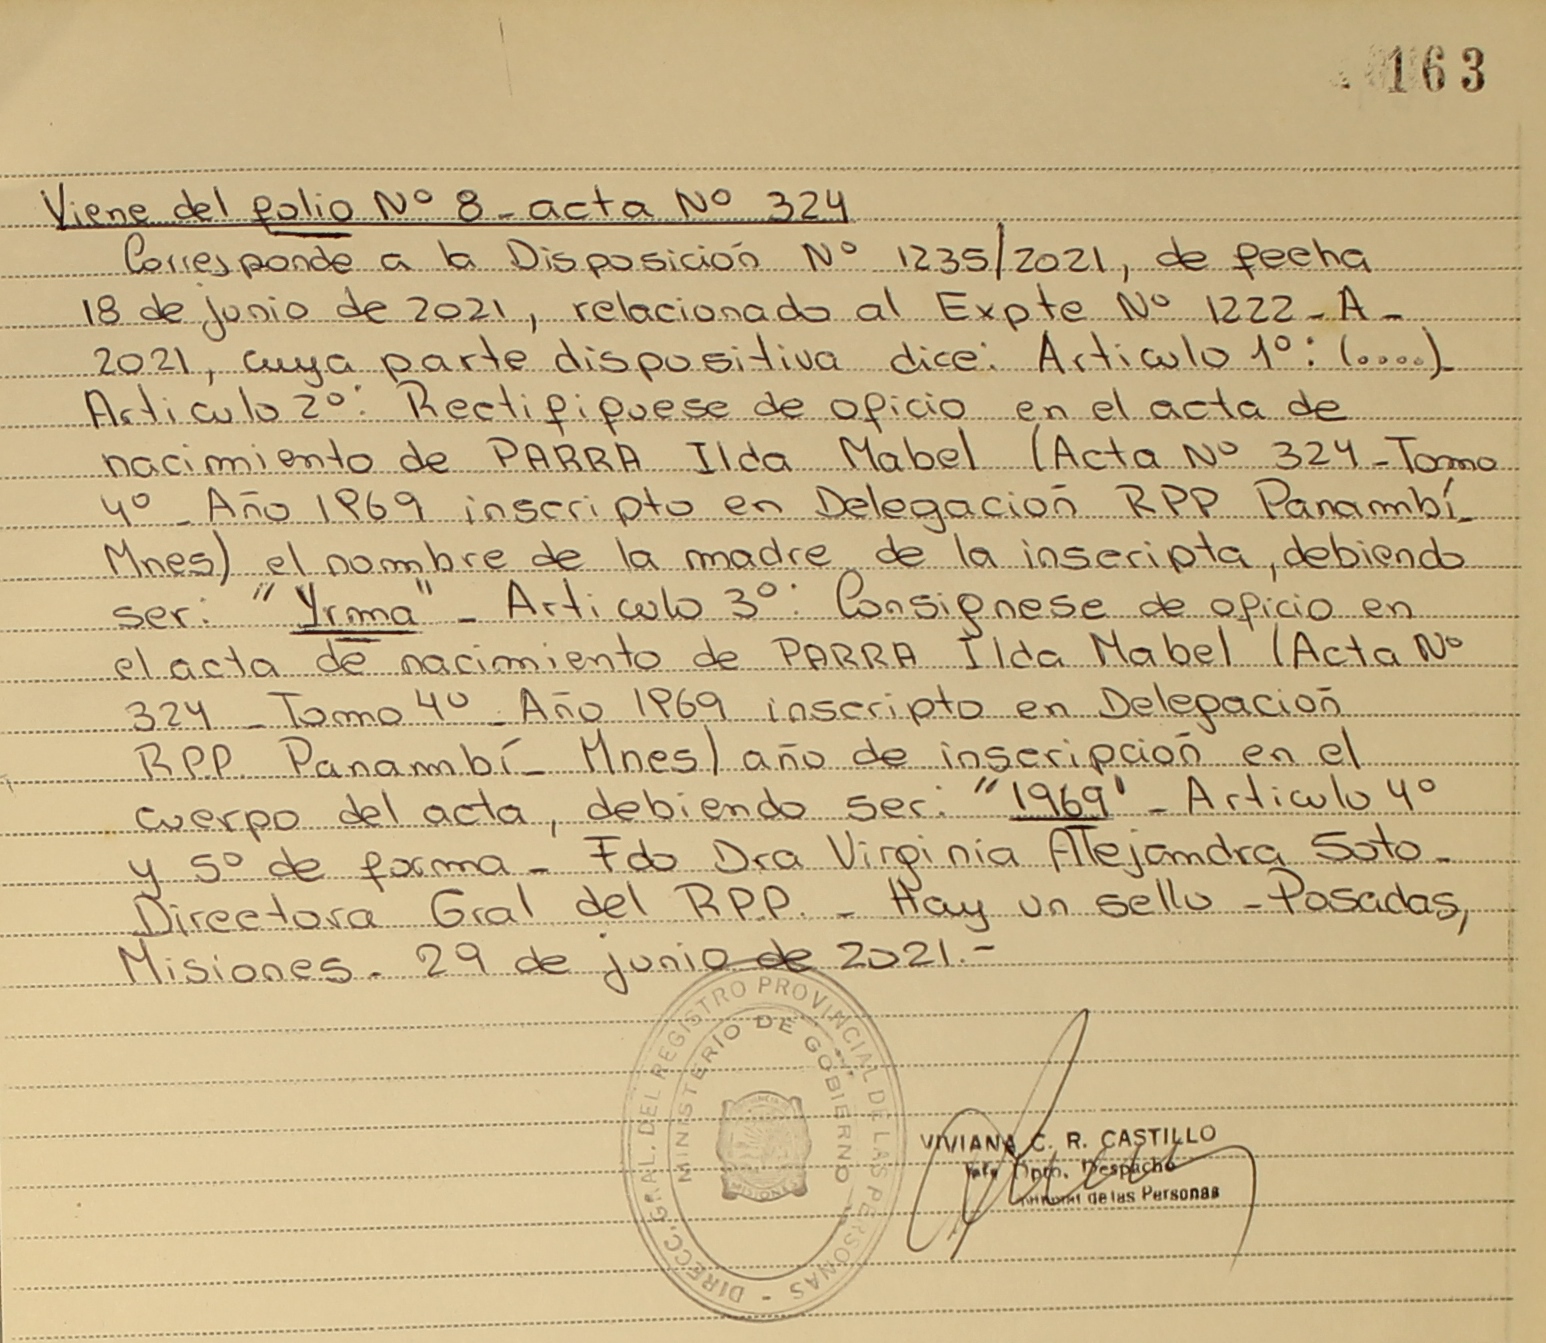 163
Viene del folio Nº 8 - acta Nº 324
Corresponde a la Disposición Nº 1235/2021, de fecha
18 de junio de 2021, relacionado al Expte Nº 1222 - A -
2021, cuya parte dispositiva dice: Articulo 1º: (....)
Articulo 2º: Rectifiquese de oficio en el acta de
nacimiento de PARRA Ilda Mabel (Acta Nº 324 - Tomo
4º - Año 1969 inscripto en Delegación RPP Panambí -
Mnes) el nombre de la madre de la inscripta, debiendo
ser: "Yrma" - Articulo 3º: Consignese de oficio en
el acta de nacimiento de PARRA Ilda Mabel (Acta Nº
324 - Tomo 4º - Año 1969 inscripto en Delegación
R.P.P. Panambí - Mnes) año de inscripción en el
cuerpo del acta, debiendo ser: "1969" - Articulo 4º
y 5º de forma - Fdo Dra Virginia Alejandra Soto -
Directora Gral del R.P.P. - Hay un sello - Posadas,
Misiones - 29 de junio de 2021.-
DIRECC. GRAL. DEL REGISTRO PROVINCIAL DE LAS PERSONAS -
MINISTERIO DE GOBIERNO
MISIONES
VIVIANA C. R. CASTILLO
Jefe Dpto. Despacho
de las Personas